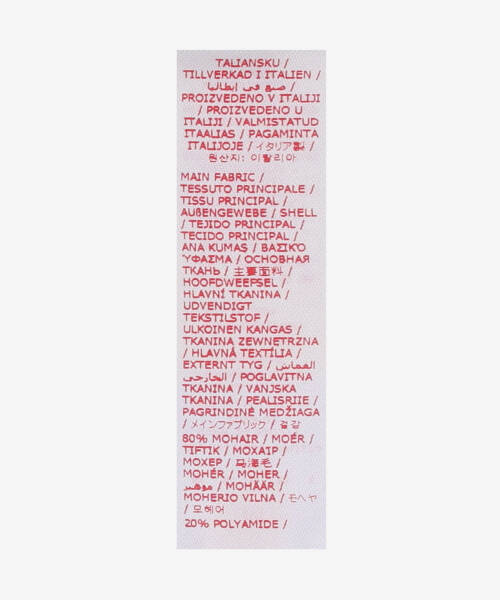 TALIANSKU /
TILLVERKAD I ITALIEN /
صنع في إيطاليا /
PROIZVEDENO V ITALIJI
/ PROIZVEDENO U
ITALIJI / VALMISTATUD
ITAALIAS / PAGAMINTA
ITALIJOJE / イタリア製 /
원산지: 이탈리아
MAIN FABRIC /
TESSUTO PRINCIPALE /
TISSU PRINCIPAL /
AUßENGEWEBE / SHELL
/ TEJIDO PRINCIPAL /
TECIDO PRINCIPAL /
ANA KUMAS / ΒΑΣΙΚΌ
ΎΦΑΣΜΑ / ОСНОВНАЯ
ТКАНЬ / 主要面料 /
HOOFDWEEFSEL /
HLAVNÍ TKANINA /
UDVENDIGT
TEKSTILSTOF /
ULKOINEN KANGAS /
TKANINA ZEWNĘTRZNA
/ HLAVNÁ TEXTÍLIA /
EXTERNT TYG / القماش
الخارجي / POGLAVITNA
TKANINA / VANJSKA
TKANINA / PEALISRIIE /
PAGRINDINĖ MEDŽIAGA
/ メインファブリック / 겉감
80% MOHAIR / MOÉR /
TIFTIK / ΜΟΧΑΙΡ /
МОХЕР / 马海毛 /
MOHÉR / MOHER /
موهير / MOHÄÄR /
MOHERIO VILNA / モヘヤ
/ 모헤어
20% POLYAMIDE /